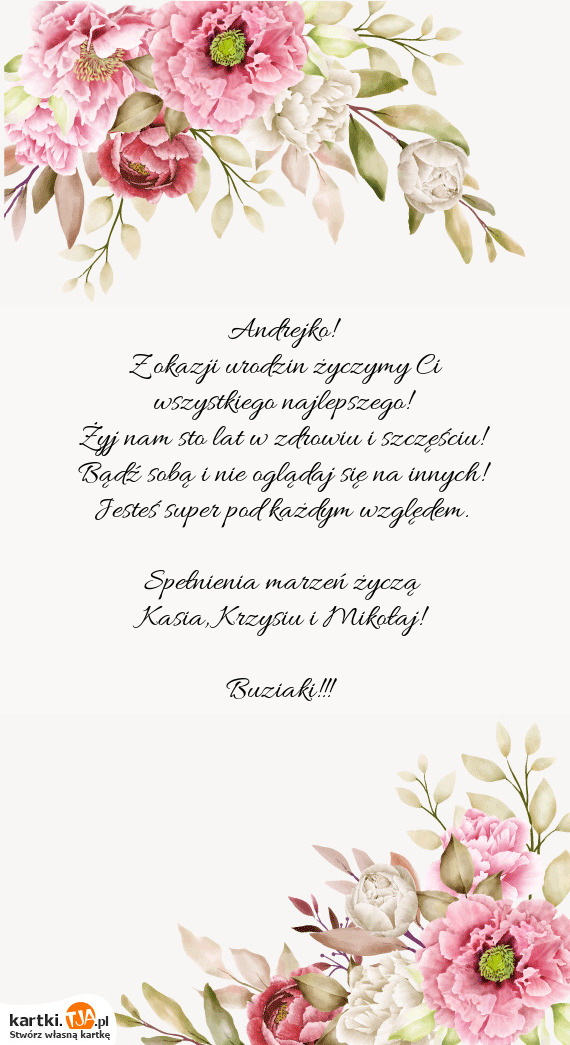 Andrejko!
Z okazji urodzin życzymy Ci
wszystkiego najlepszego!
Żyj nam sto lat w zdrowiu i szczęściu!
Bądź sobą i nie oglądaj się na innych!
Jesteś super pod każdym względem.
Spełnienia marzeń życzą
Kasia, Krzysiu i Mikołaj!
Buziaki!!!
kartki.TJA.pl
Stwórz własną kartkę